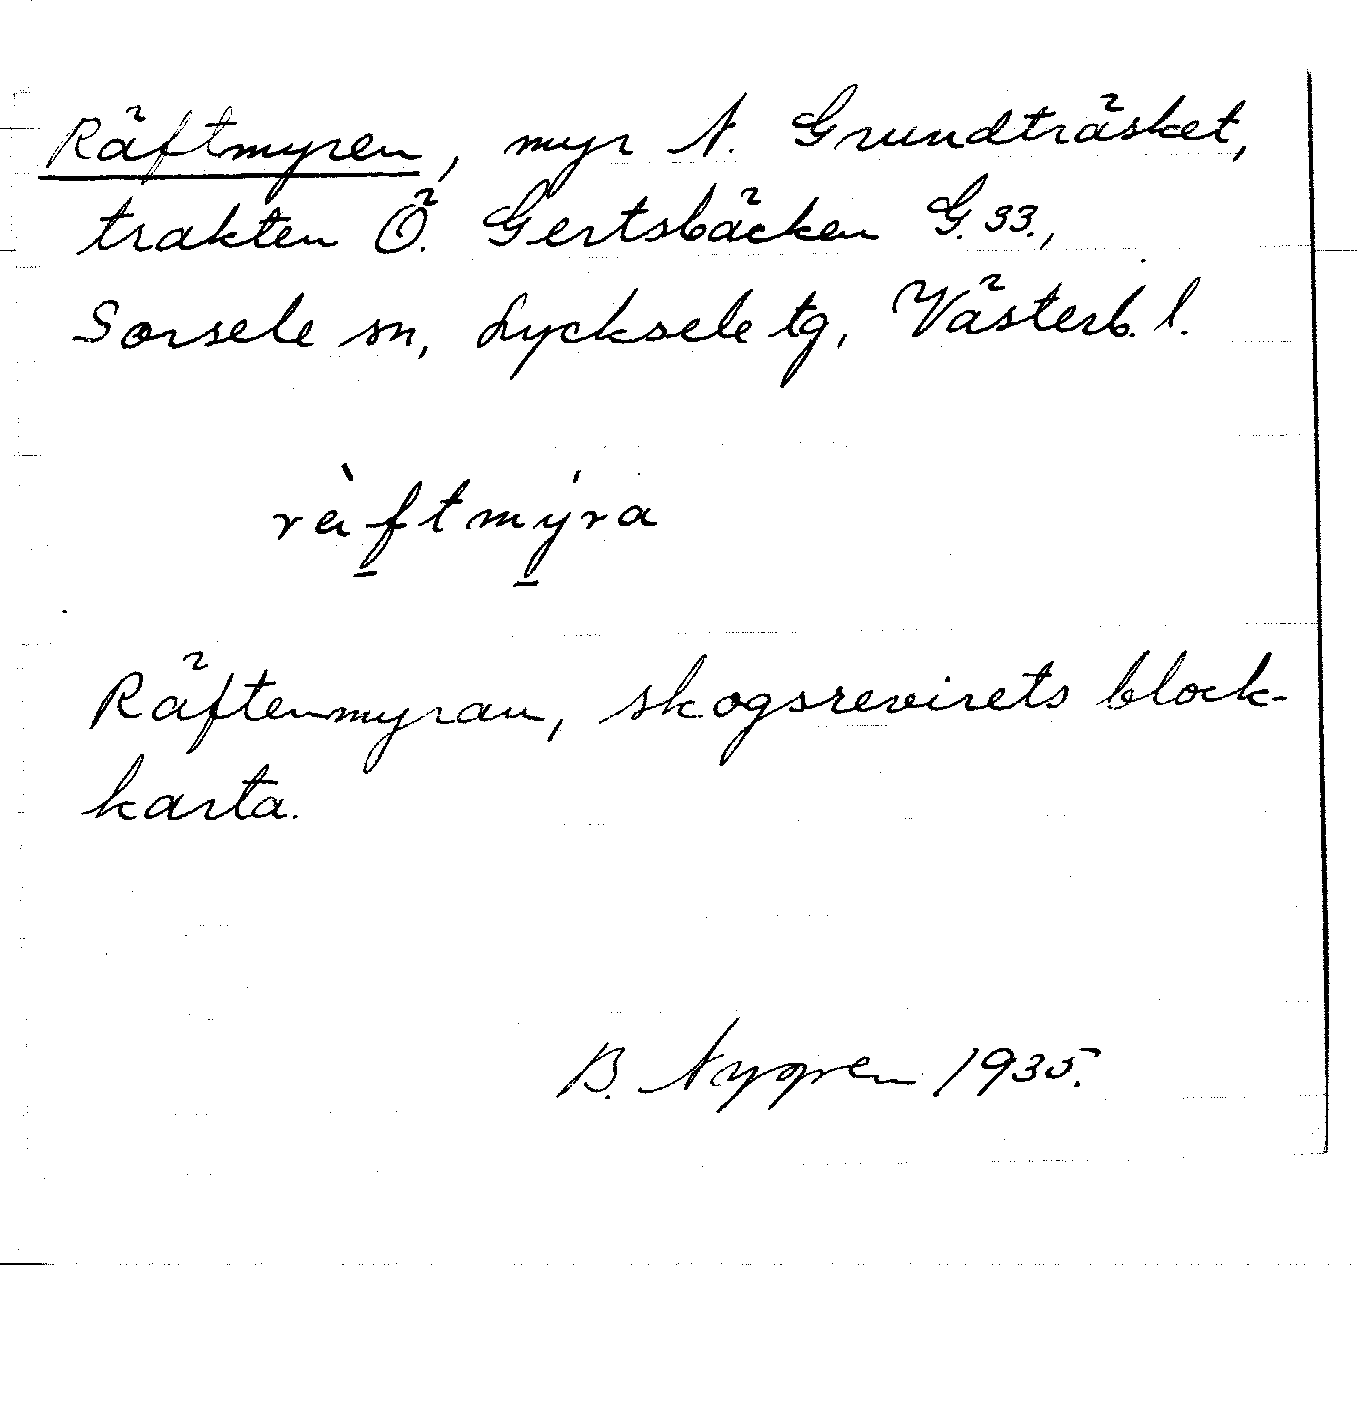 Räftmyren, myr N. Grundträsket,
trakten Ö. Gertsbäcken G. 33.,
Sorsele sn, Lycksele tg, Västerb. l.
rä̀ftmýra
Räftenmyran, skogsrevirets block-
karta.
B. Nygren 1935.